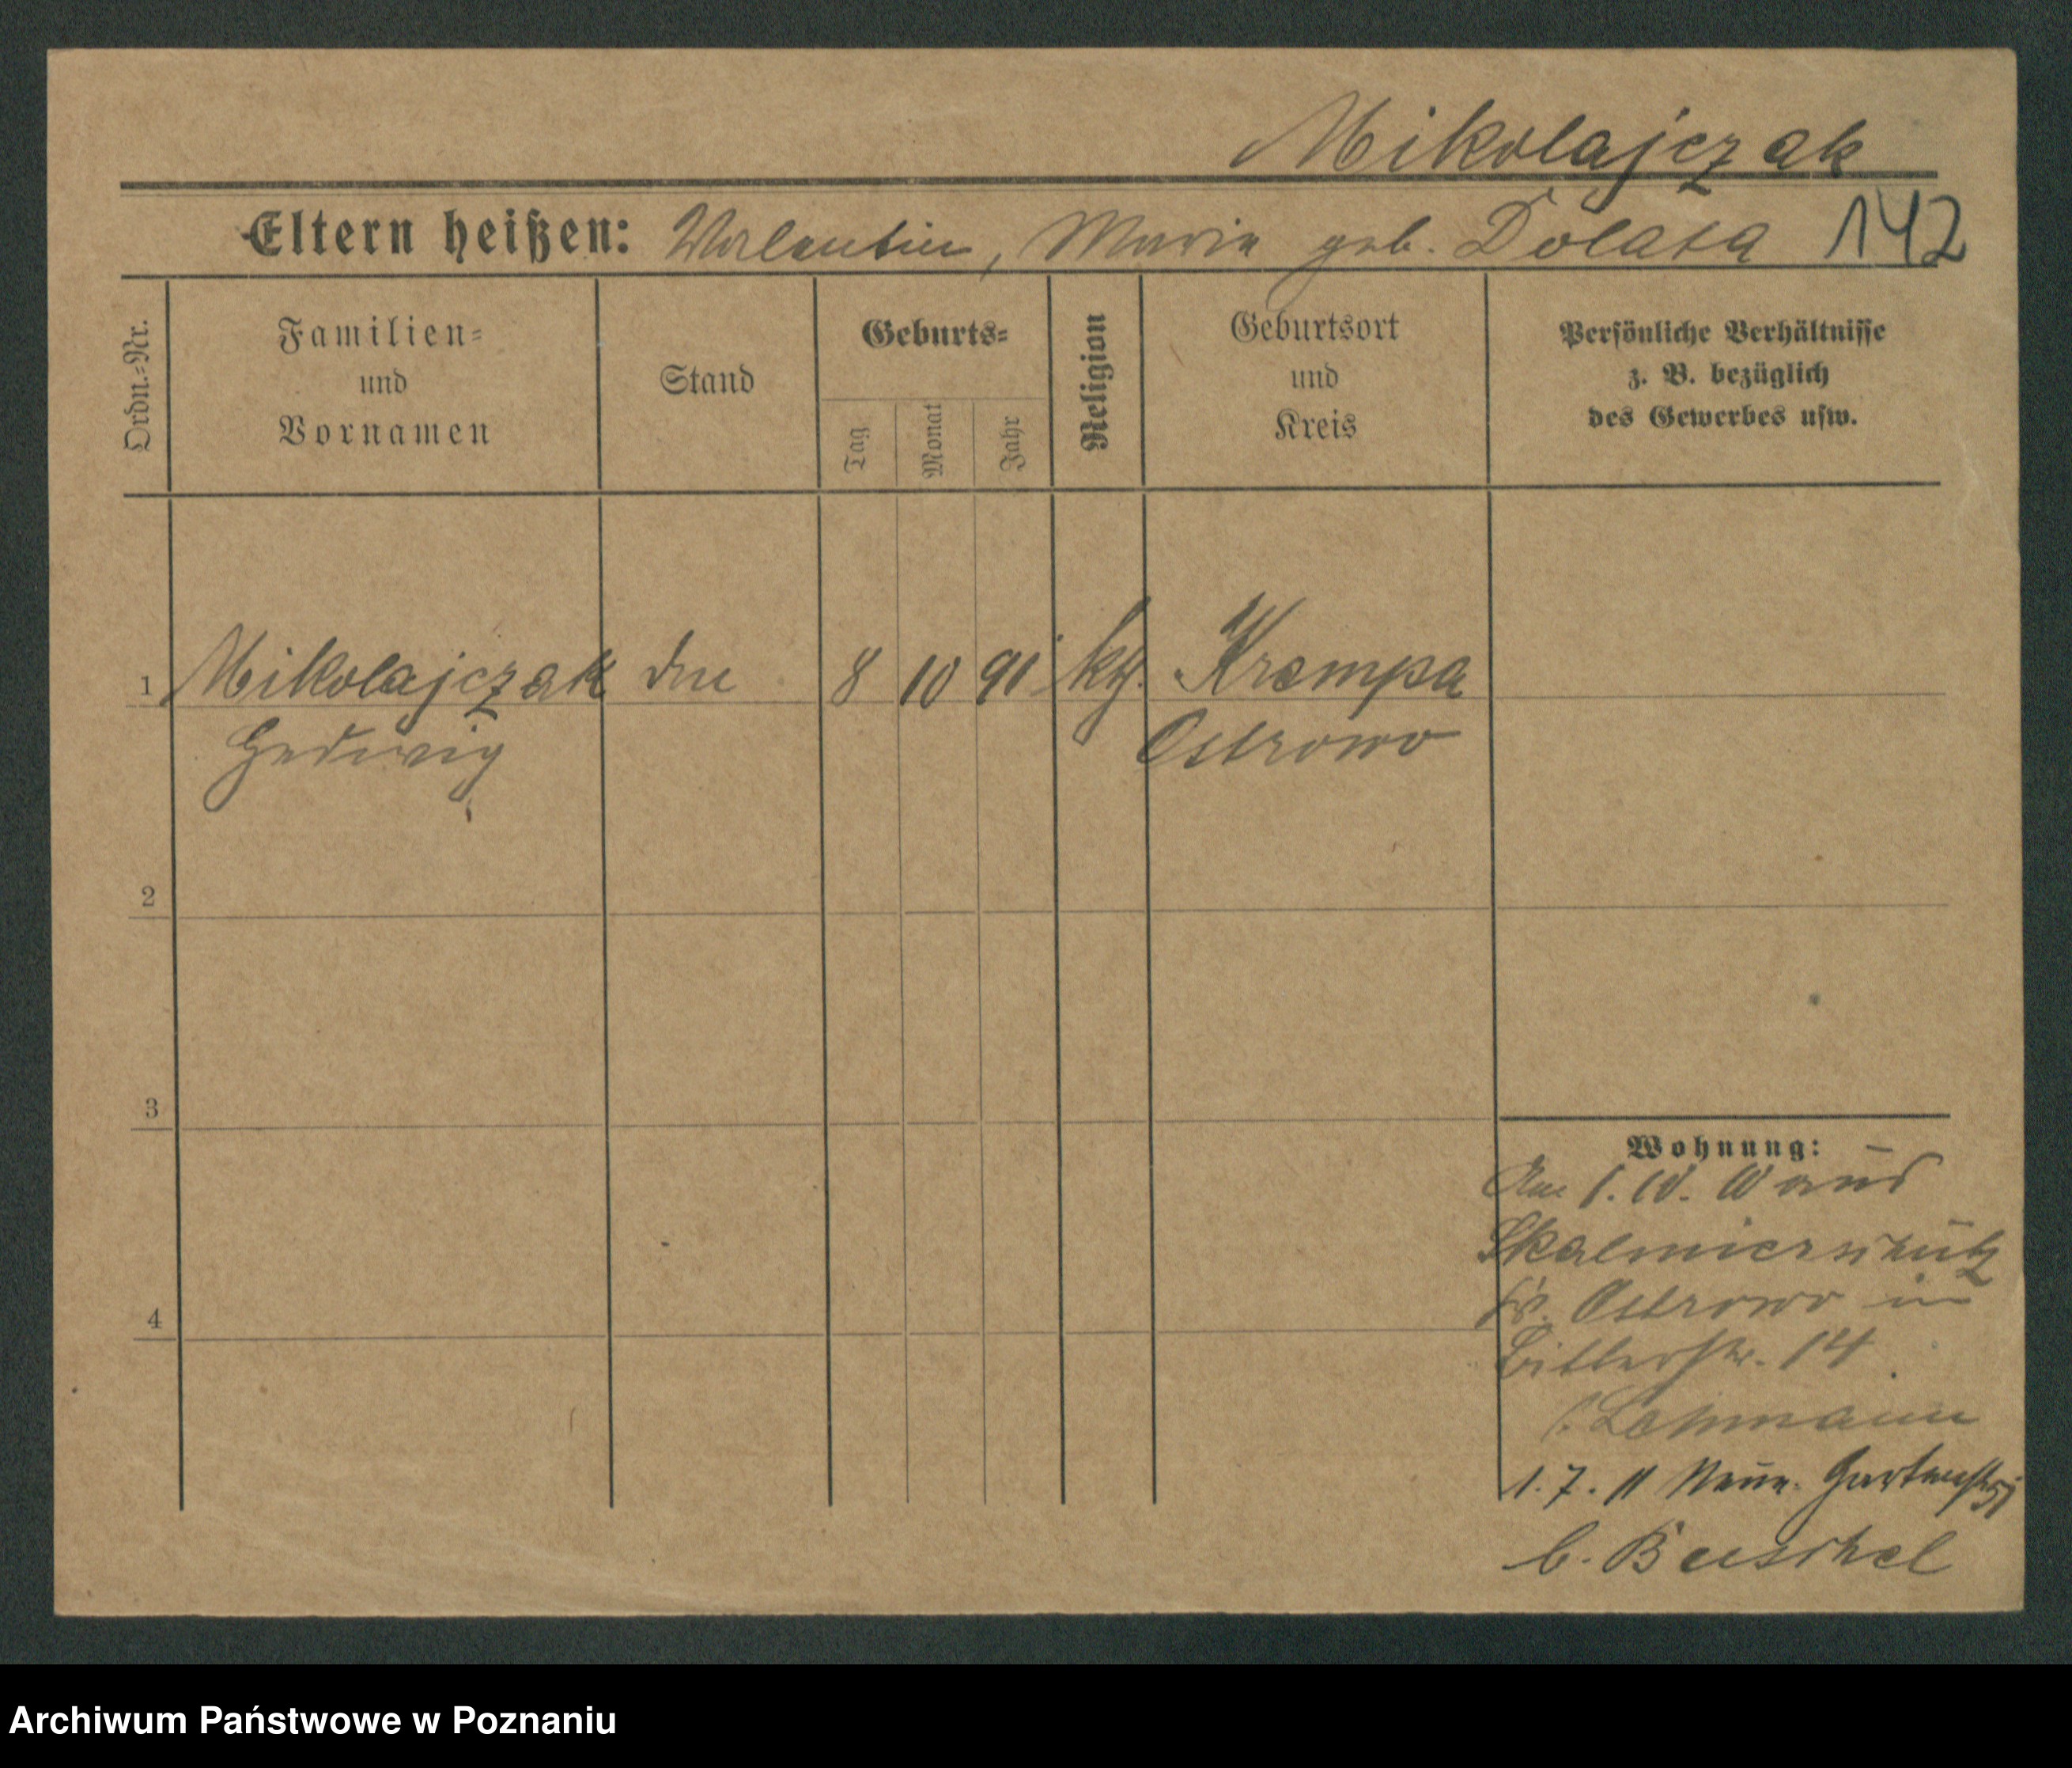 Mikolajczak
Eltern heißen: Valentin, Marie geb. Dolata 142
Ordn.-Nr.
Familien-
und
Vornamen
Stand
Geburts-
Tag
Monat
Jahr
Religion
Geburtsort
und
Kreis
Persönliche Verhältnisse
z. B. bezüglich
des Gewerbes usw.
1 Mikolajczak 8 10 91 kth. Krempa
Hedwig Ostrowo
2
3
4
Wohnung:
Am 1. 10. 10 aus
Skalmierschütz
Kr. Ostrowo in
14
b. Lehmann
1. 7. 11 Neue Gartenstr.
b. Buschel
Archiwum Państwowe w Poznaniu